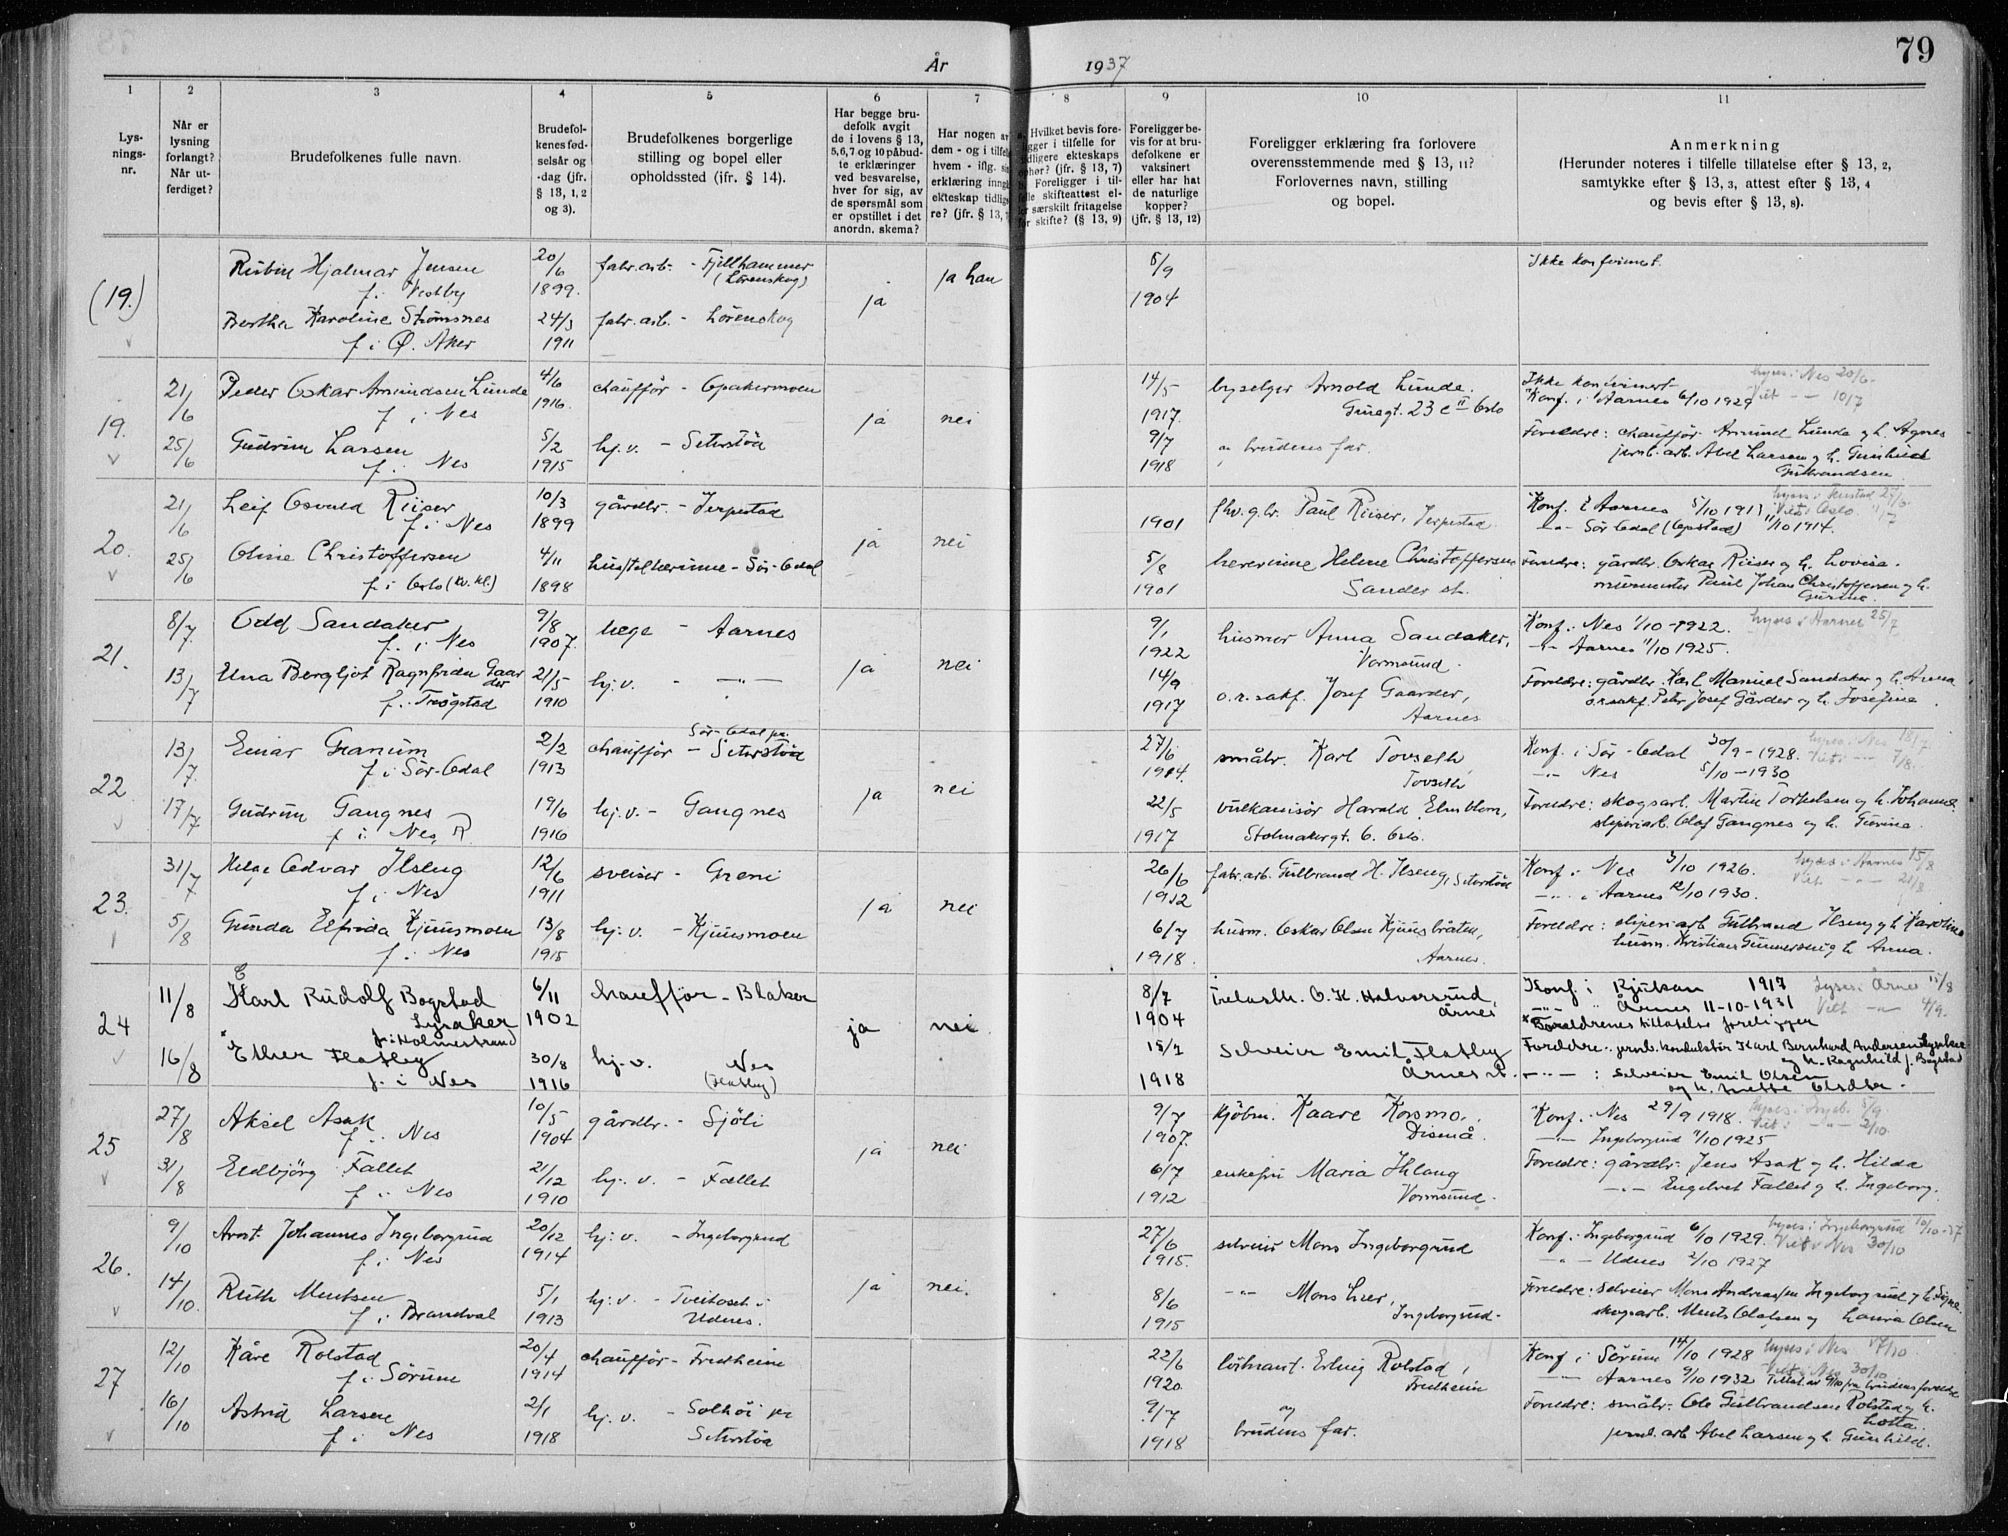 År 1937
79
1 2 3 4 5 6 7 8 9 10 11
Lys-
nings-
nr.
Når er
lysning
forlangt?
Når ut-
ferdiget?
Brudefolkenes fulle navn.
Brudefol-
kenes fød-
selsår og
-dag (jfr.
§ 13, 1, 2
og 3).
Brudefolkenes borgerlige
stilling og bopel eller
opholdssted (jfr. § 14).
Har begge bru-
defolk avgit
de i lovens § 13,
5,6,7 og 10 påbud-
te erklæringer
ved besvarelse,
hver for sig, av
de spørsmål som
er opstillet i det
anordn. skema?
Har nogen av
dem - og i tilfelle
hvem - iflg. sin
erklæring inngått
ekteskap tidlige-
re? (jfr. § 13, 7
Hvilket bevis fore-
ligger i tilfelle for
tidligere ekteskaps
ophør? (jfr. § 13, 7)
Foreligger i til-
felle skifteattest el-
ler særskilt fritagelse
for skifte? (§ 13, 9)
Foreligger be-
vis for at bru-
defolkene er
vaksinert
eller har hat
de naturlige
kopper?
(jfr. § 13, 12)
Foreligger erklæring fra forlovere
overensstemmende med § 13, 11?
Forlovernes navn, stilling
og bopel.
Anmerkning
(Herunder noteres i tilfelle tillatelse efter § 13, 2,
samtykke efter § 13, 3, attest efter § 13, 4
og bevis efter § 13, 8).
(19.)
Rubin Hjalmar Jensen
f. i Vestby
20/6
1899.
fabr. arb. - Fjellhammer
(Lørenskog)
ja
ja han
5/9
1904
Ikke konfirmert.
Bertha Karoline Strømsnes
f. i Ø. Aker
24/3
1911
fabr. arb. - Lørenskog
19.
21/6
Peder Oskar Amundsen Lunde
f. i Nes
4/6
1916.
chauffør - Opakermoen
ja
nei
14/5
1917.
byselger Arnold Lunde.
23 c II Oslo
Ikke konfirmert
Konf. i Aarnes 6/10 1929
lyses i Nes 20/6.
Viet - - 10/7
25/6
Gudrun Larsen
f. i Nes
5/2
1915
hj. v. - Seterstøa
9/7
1918
brudens far.
Foreldre: chauffør Amund Lunde og h. Agnes
jernb. arb. Abel Larsen og h. Gunhild
Gulbrandsen
20.
21/6
Leif Osvald Riiser
f. i Nes
10/3
1899
gårdbr. - Jerpestad
ja
nei
1901
fhv. g.br. Paul Riiser, Jerpestad
Konf. i Aarnes 5/10 1913
-"- Sør Odal (Opstad) 11/10 1914.
25/6
Oline Christoffersen
f. i Oslo (Kv. kl.)
4/11
1898
hustellærerinne - Sør-Odal
5/8
1901
lærerinne Helene Christoffersen
Sander st.
Foreldre: gårdbr. Oskar Riiser og h. Lovisa.
murmester Paul Johan Christoffersen og h.
Gurine.
21.
8/7
Odd Sandaker
f. i Nes
9/8
1907.
læge - Aarnes
ja
nei
9/1
1922
husmor Anna Sandaker,
Vormsund.
Konf. i Nes 1/10 - 1922.
-"- Aarnes 11/10 1925.
lyses i Aarnes 25/7
13/7
Una Bergljot Ragnfrida Gaar
der
f. i Trøgstad
21/5
1910
hj. v. - -"-
14/9
1917
o.r.sakf. Josef Gaarder,
Aarnes
Foreldre: gårdbr. Karl Manuel Sandaker og h. Anna
o.r.sakf. Peter Josef Gårder og h. Josefine
22
13/7
Einar Granum
f. i Sør-Odal
2/2
1913
Sør-Odal pr.
chauffør - Seterstøa
ja
nei
27/6
1914.
småbr. Karl Tovseth,
Tovseth
Konf. i Sør-Odal 30/9 - 1928.
-"- Nes 5/10 - 1930
lyses i Nes 18/7
Viet -"- 7/8.
17/7
Gudrun Gangnes
f. i Nes, R
19/6
1916
hj. v. - Gangnes
22/5
1917
vulkanisør Harald Elmblom,
Stolmakergt. 6. Oslo.
Foreldre: skogsarb. Martin Torkelsen og h. Johanne
sliperiarb. Olaf Gangnes og h. Gurine.
23.
31/7
Helge Odvar Ilseng
f. i Nes
12/6
1911
sveiser - Greni
ja
nei
26/6
1912
fabr. arb. Gulbrand H. Ilseng, Seterstøa
Konf. i Nes 3/10 1926.
-"- i Aarnes 12/10 1930.
lyses i Aarnes 15/8
Viet - " - 21/8
5/8
Gunda Elfrida Kjuusmoen
f. i Nes
13/8
1915
hj. v. - Kjuusmoen
6/7
1918.
husm. Oskar Olsen Kjuusbråten,
Aarnes.
Foreldre: sliperiarb Gulbrand Ilseng og h. Karoline
husm. Kristian Gunnersen og h. Anna.
24
11/8
Karl Rudolf Bogstad
Lysaker
f. i Holmestrand
6/11
1902
chauffør - Blaker
ja
nei
8/7
1904
O. K. Halvorsrud,
Årnes
Konf. i Rjukan 1917
-"- Årnes 11-10-1931
Lyses i Årnes 15/8
Viet -"- 4/9.
* Foreldrenes tillatelse foreligger
16/8
* Esther Flatby
f. i Nes
30/8
1916
hj. v. Nes
(Flatby)
15/7
1918
Selveier Emil Flatby
Årnes R.
Foreldre: jernb. konduktør Karl Bernhard Andersen Lysaker
og h. Ragnhild f. Bogstad
-"- : selveier Emil Olsen
og h. Mette Olsdtr.
25
27/8
Aksel Asak
f. i Nes
10/5
1904
gårdbr. - Sjøli
ja
nei
9/7
1907.
Kjøbm. Kaare Korsmo,
Dismå.
Konf. i Nes 29/9 1918.
-"- Ingeborgrud 11/10 1925
lyses i Ingeb. 5/9.
Viet i -"- 2/10.
31/8
Eldbjørg Fallet
f. i Nes
21/12
1910
hj. v. - Fallet
6/7
1912
enkefru Maria Ihlang
Vormsund.
Foreldre: gårdbr. Jens Asak og h. Hilda
-"- Engebret Fallet og h. Ingeborg.
26.
9/10
Arnt Johannes Ingeborgrud
f. i Nes
20/12
1914
hj. v. - Ingeborgrud
ja
nei.
27/6
1915.
selveier Mons Ingeborgrud
Konf. i Ingeborgrud 6/10 1929.
-"- Udnes 2/10 1927
lyses i Ingeborgrud 10/10-37
Viet i Nes 30/10
14/10.
Ruth Mentsen
f. i Brandval
5/1
1913
hj. v. - Tveitaset i
Udnes.
8/6
1915
-"- Mons Lier,
Ingeborgrud.
Foreldre: Selveier Mons Andreassen Ingeborgrud og h. Signe.
skogsarb. Ments Olafsen og Laura Olsen
27
12/10
Kåre Rolstad
f. i Sørum
20/4
1914
chauffør - Fredheim
22/6
1920.
løitnant. Erling Rolstad,
Fredheim
Konf i Sørum 14/10 1928
-"- Aarnes 9/10 1932
lyses i Nes 17/10
Viet i Nes 30/10
Tillat. av 9/10 fra brudens foreldre
16/10
Astrid Larsen
f. i Nes
2/1
1918
hj. v. - Solhøi pr
Seterstøa
9/7
1918
og
brudens far.
Foreldre: småbr. Ole Gulbrandsen Rolstad og h.
Lotta.
jernb. arb Abel Larsen og h. Gunhild.